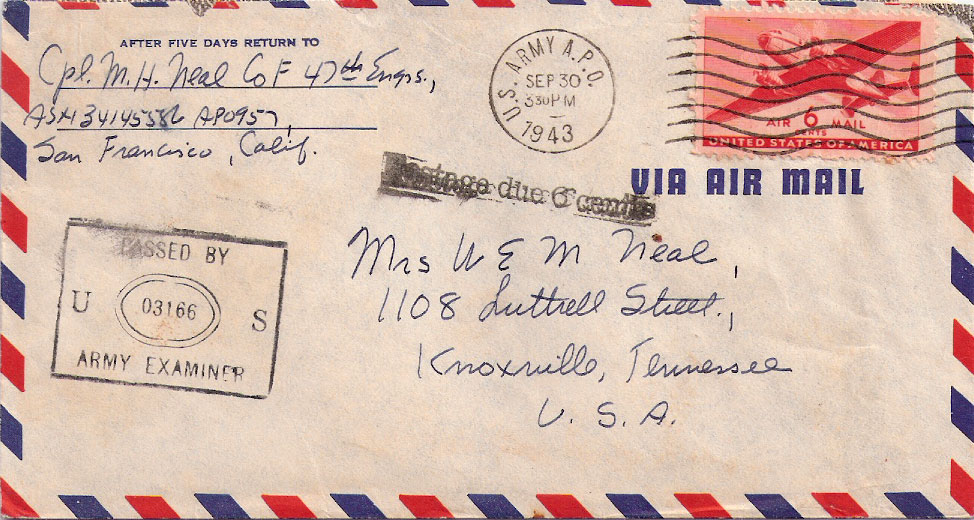 AFTER FIVE DAYS RETURN TO
Cpl. M. H. Neal Co F 47th Engrs.,
ASN 34145586 APO957,
San Francisco, Calif.
U.S. ARMY A.P.O.
SEP 30
330PM
1943
AIR 6 MAIL
CENTS
UNITED STATES OF AMERICA
VIA AIR MAIL
Postage due 6 cents
PASSED BY
U 03166 S
ARMY EXAMINER
Mrs W E M Neal,
1108 Luttrell Street,
Knoxville, Tennessee
U. S. A.